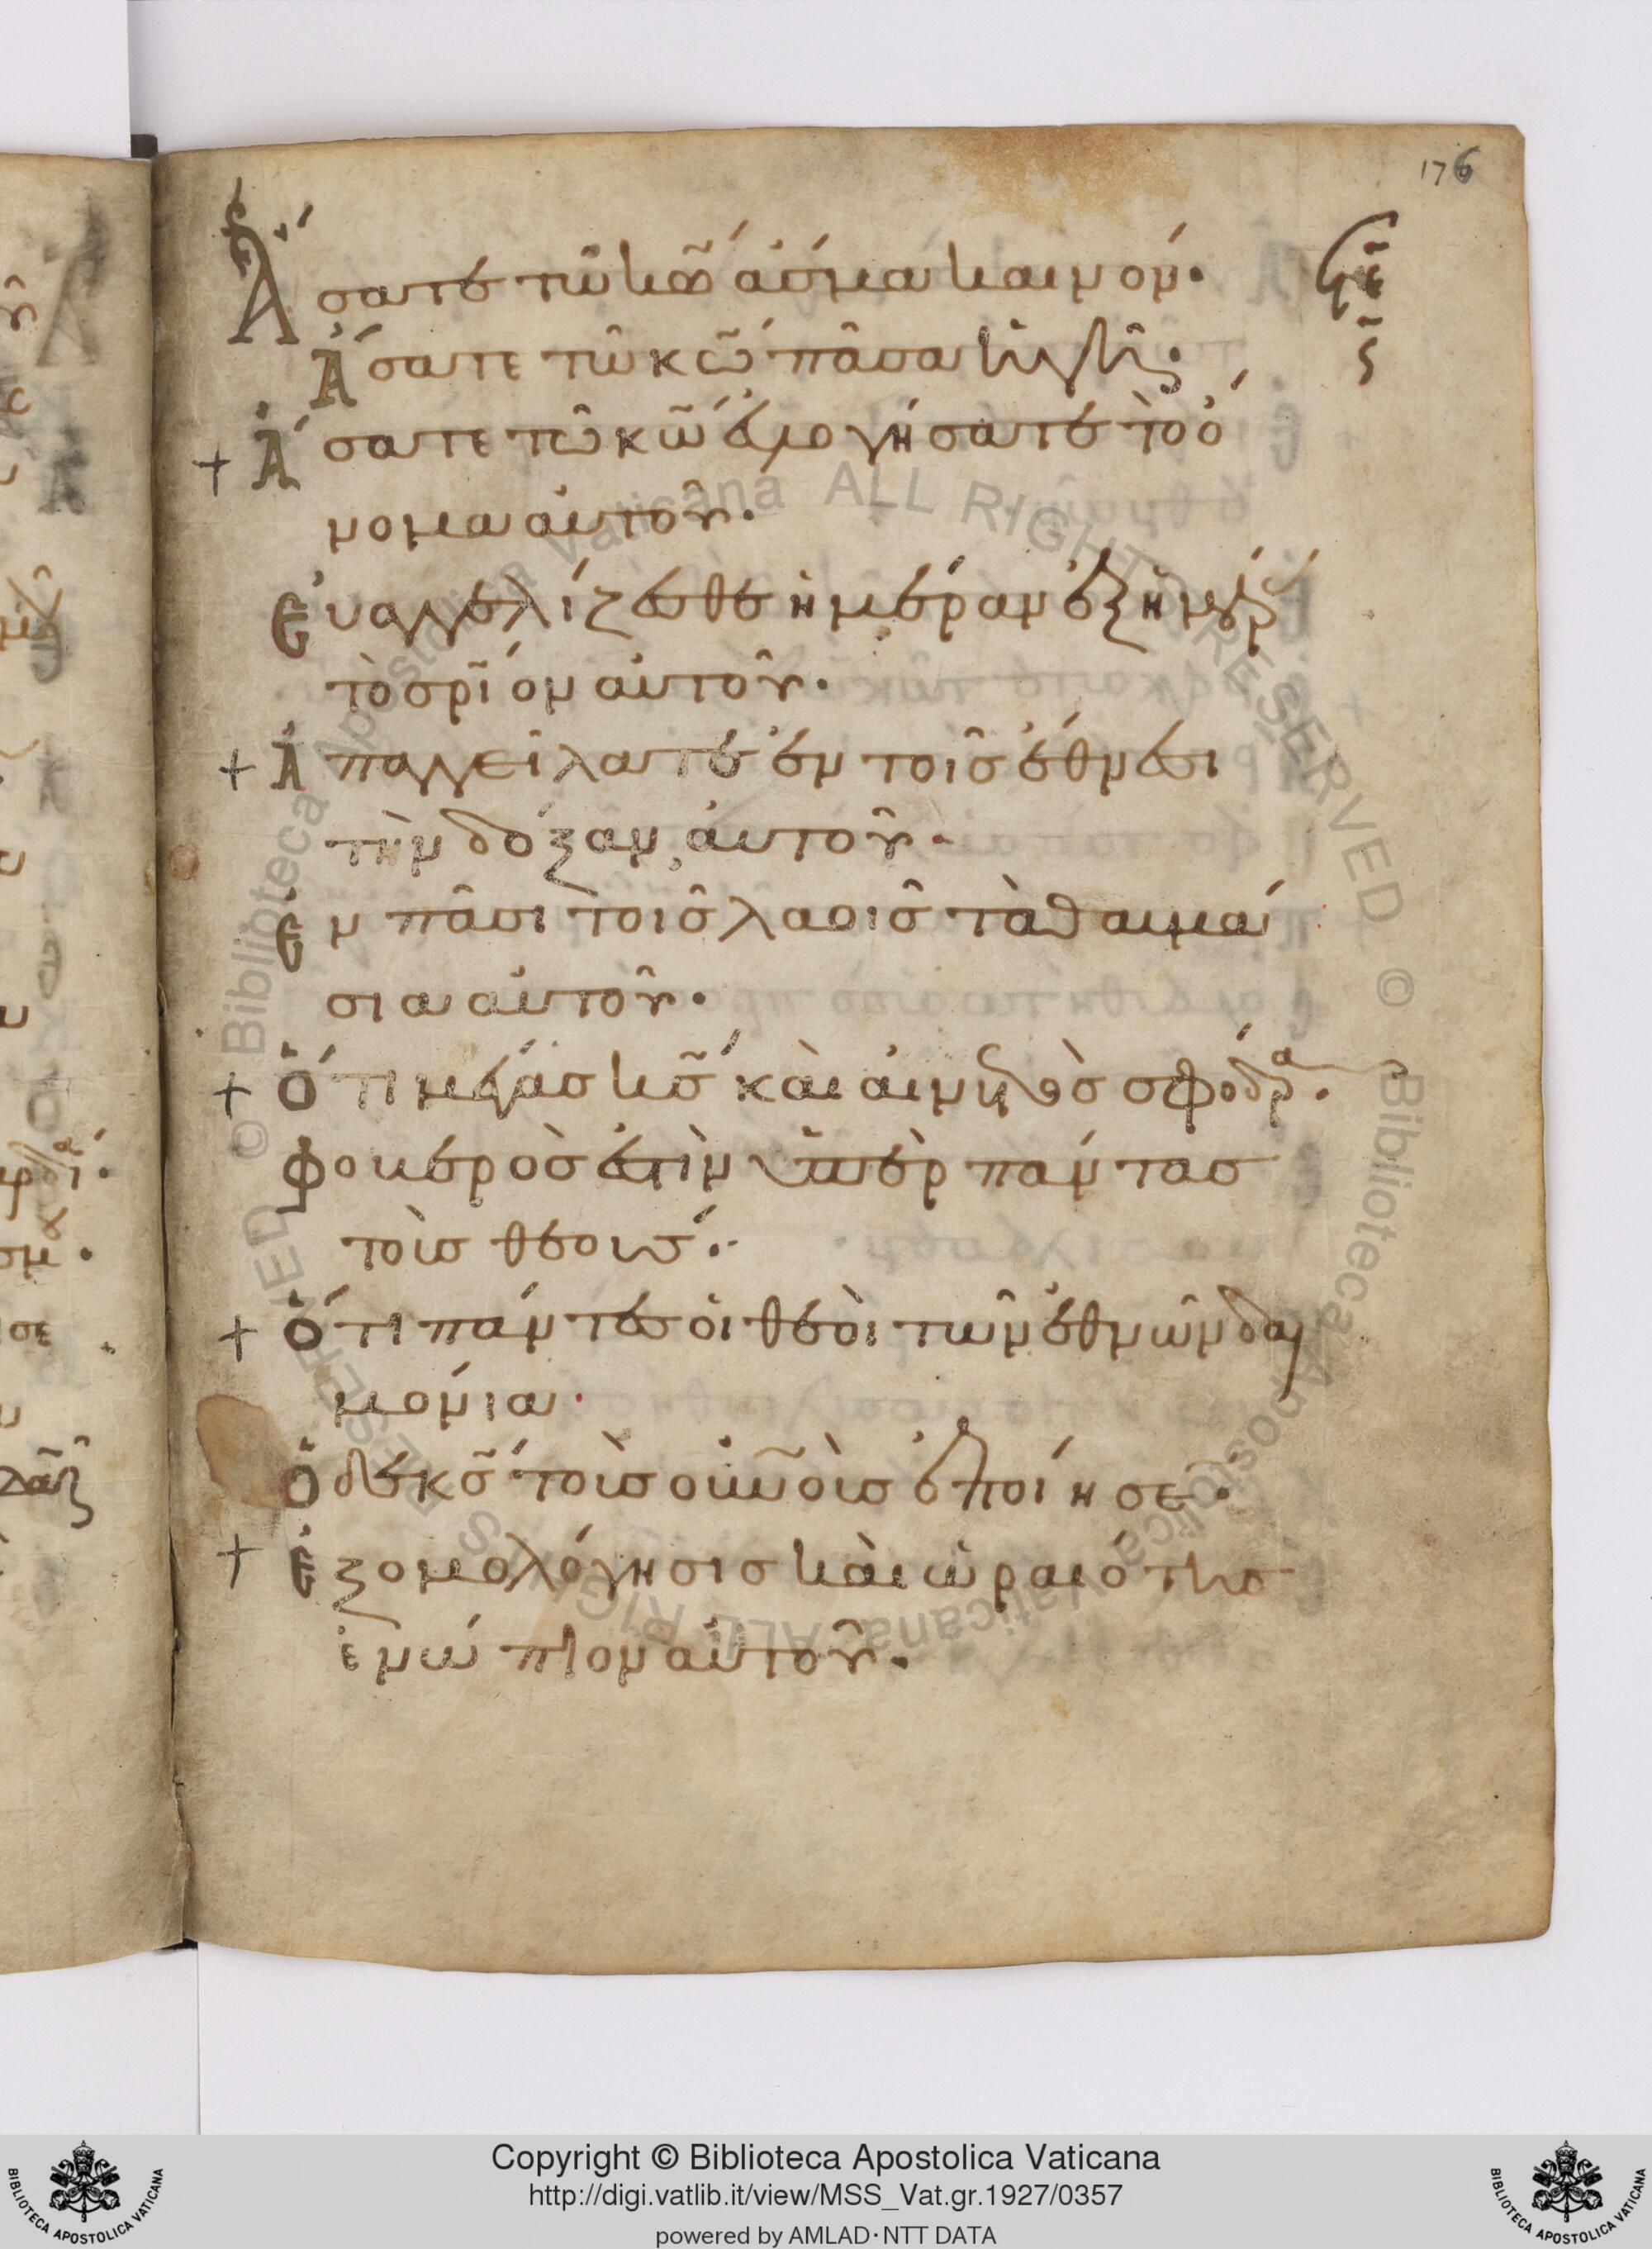 176
Ἄσατε τῶ κῶ ἄσμα καινόν·
Ἄσατε τῶ κῶ πᾶσα ἡ γῆ·
+ Ἄσατε τῶ κῶ ἐυλογήσατε τὸ ὄ
νομα αὐτοῦ·
Εὐαγγελίζεσθε ἡμέραν ἐξ ἡμέρ
τὸ σρ̅ιον αὐτοῦ·
+ Ἀπαγγείλατε ἐν τοῖς ἔθνεσι
τὴν δόξαν αὐτοῦ·
Ἐν πᾶσι τοῖς λαοῖς τὰ θαυμά
σια αὐτοῦ·
+ Ὅτι μέγας κς̅ καὶ αἰνετὸς σφόδρα·
Φοβερός ἐστὶν ὑπὲρ πάντας
τοὺς θεούς·
+ Ὅτι πάντες οἱ θεοὶ τῶν ἐθνῶν δαι
μόνια·
Ὁ δὲ κς̅ τοὺς οὐνοὺς ἐποίησε·
+ Ἐξομολόγησις καὶ ὡραιότης
ἐνώπιον αὐτοῦ·
Copyright © Biblioteca Apostolica Vaticana
http://digi.vatlib.it/view/MSS_Vat.gr.1927/0357
powered by AMLAD·NTT DATA
BIBLIOTECA APOSTOLICA VATICANA
BIBLIOTECA APOSTOLICA VATICANA